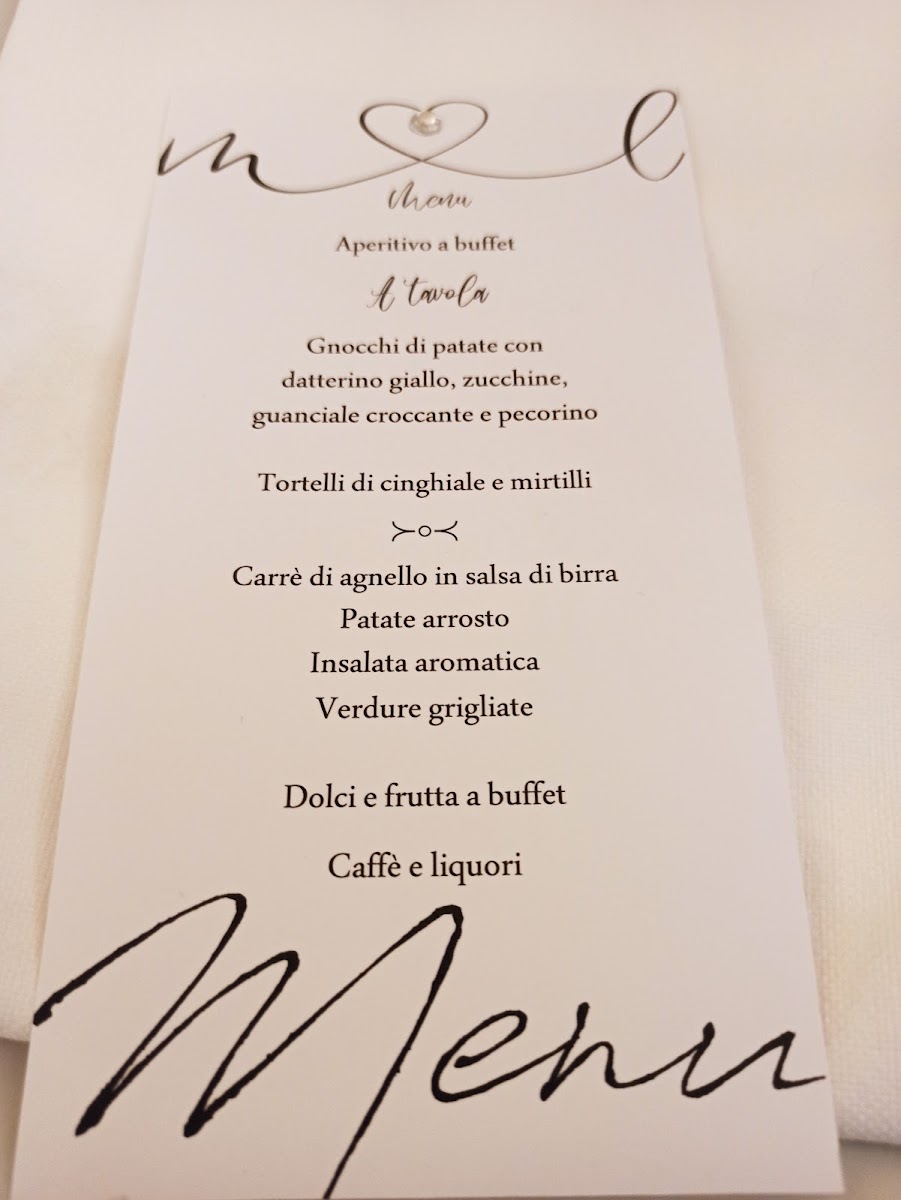 m l
Menu
Aperitivo a buffet
A tavola
Gnocchi di patate con
datterino giallo, zucchine,
guanciale croccante e pecorino
Tortelli di cinghiale e mirtilli
Carrè di agnello in salsa di birra
Patate arrosto
Insalata aromatica
Verdure grigliate
Dolci e frutta a buffet
Caffè e liquori
Menu